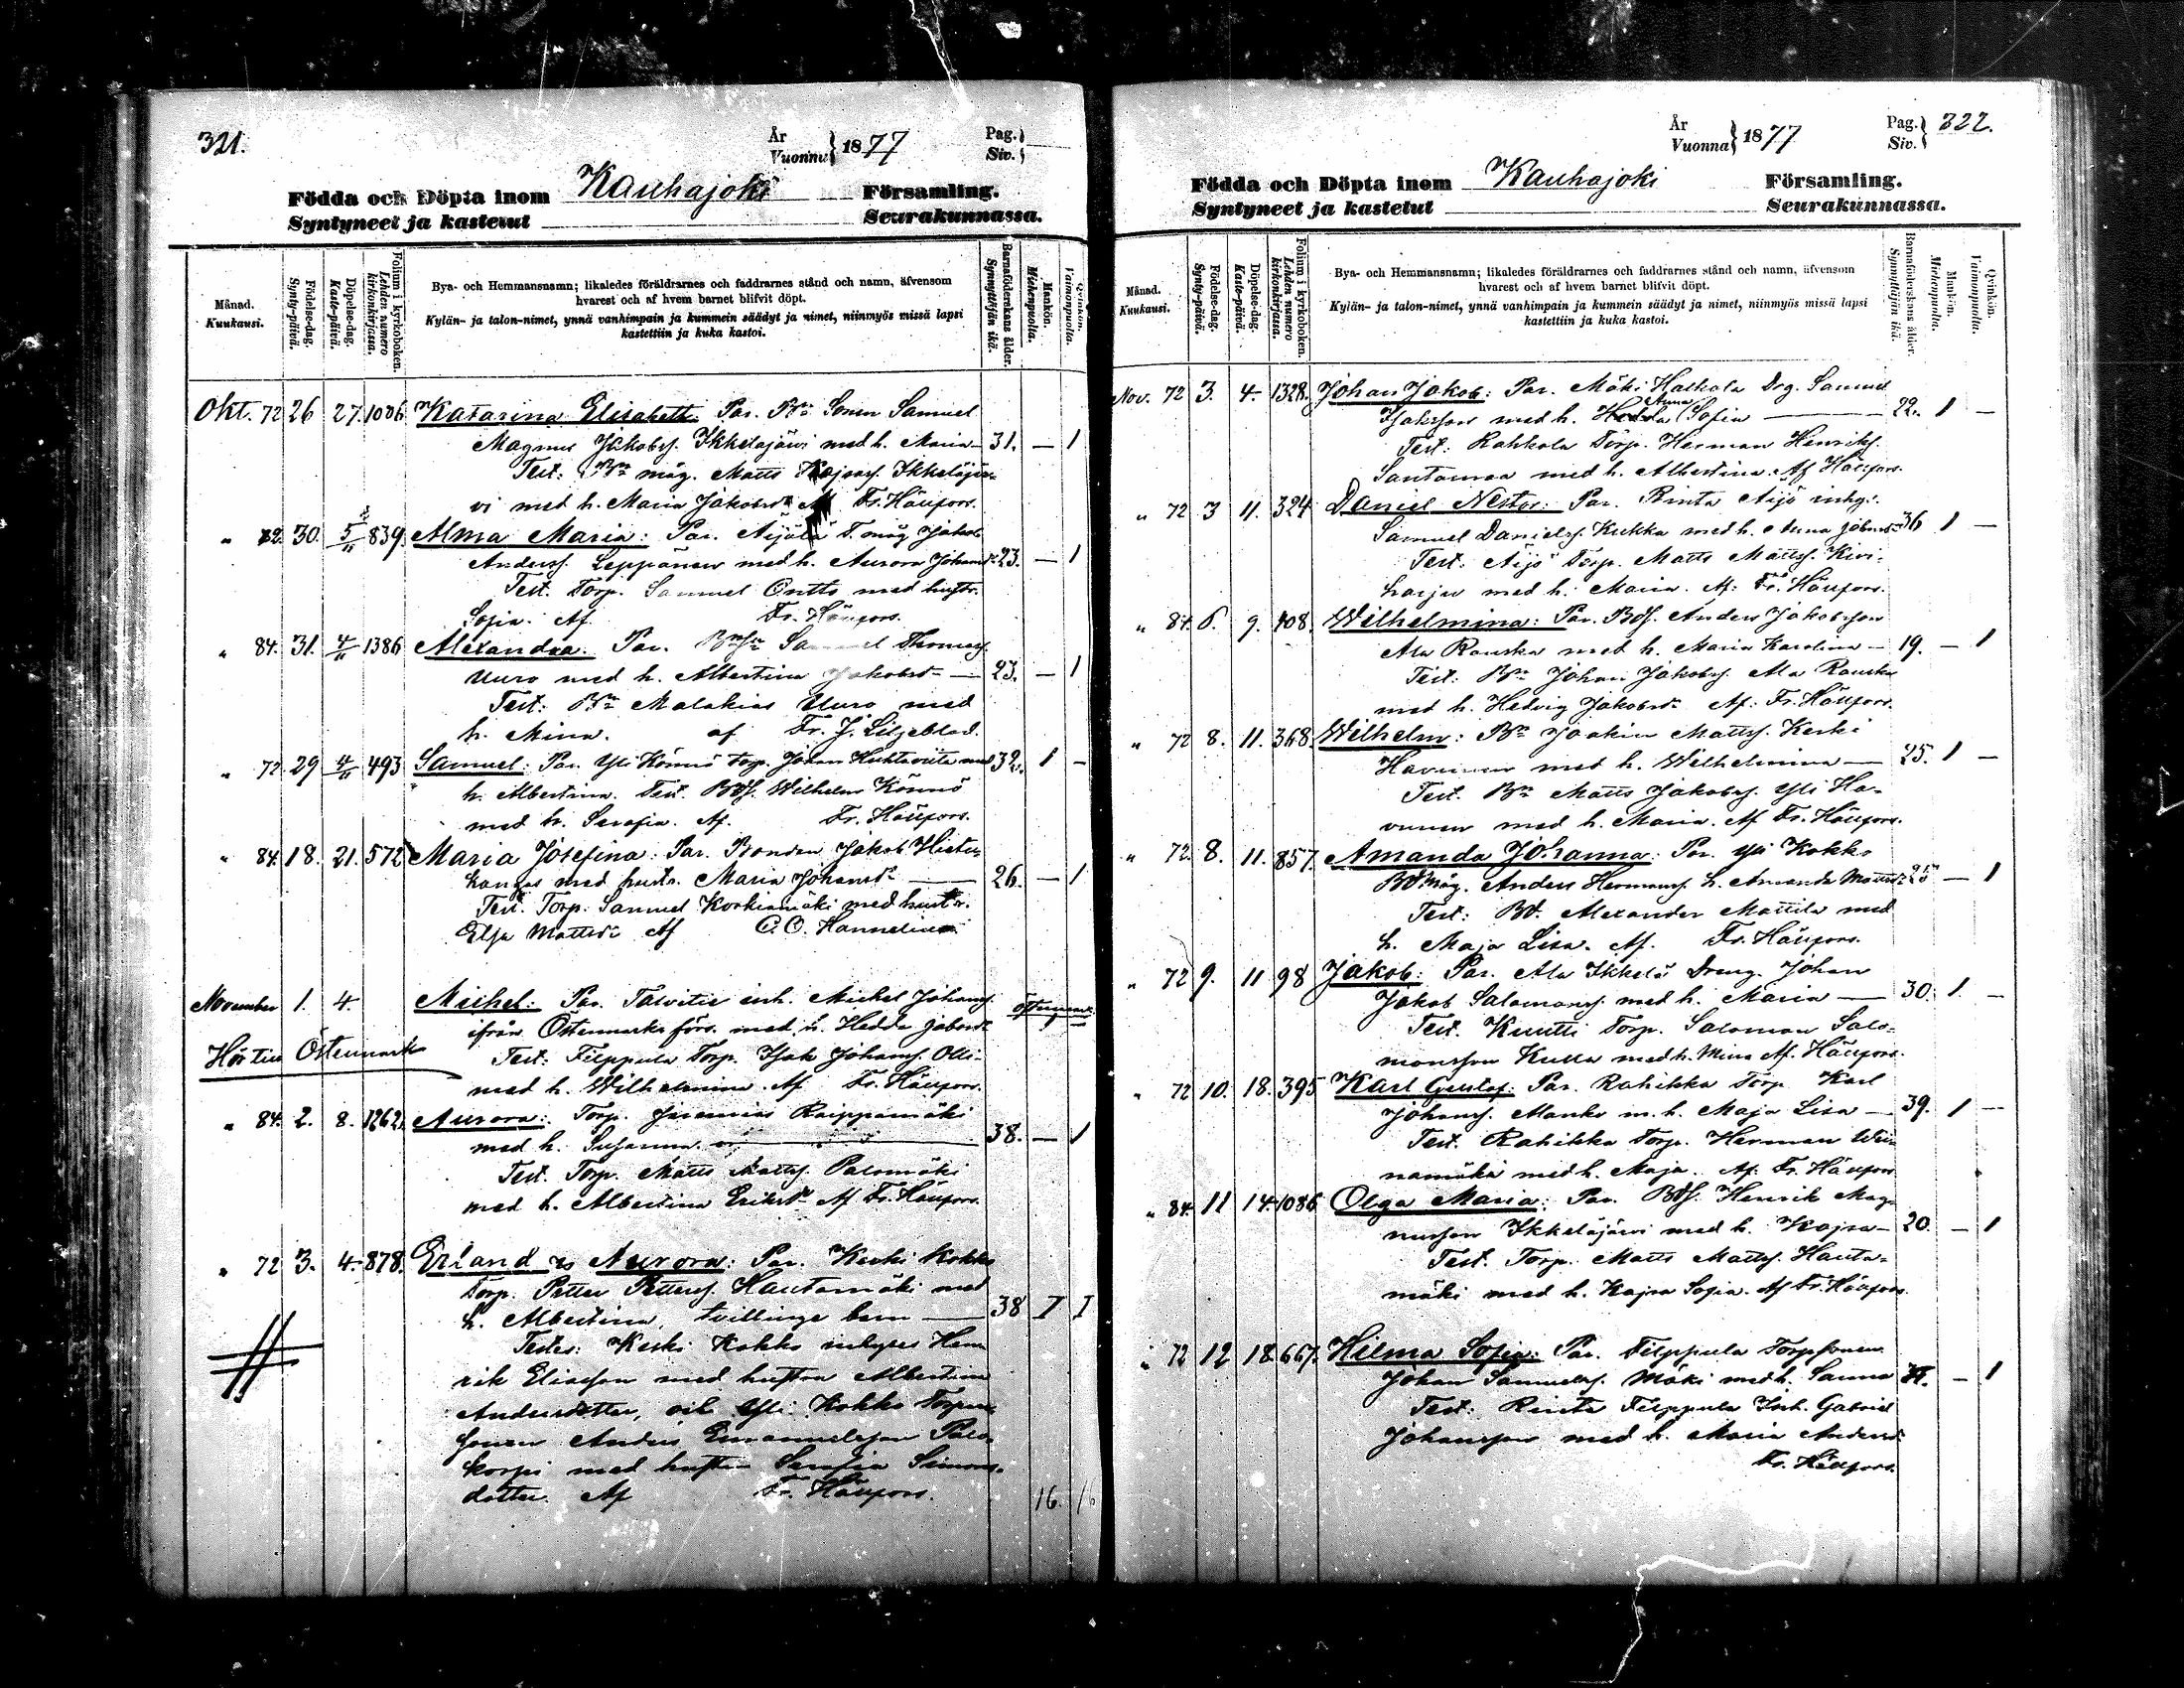 321.
År
Vuonna} 1877
Pag.}
Siv.}
Födda och Döpta inom Kauhajoki Församling.
Syntyneet ja kastetut Seurakunnassa.
Månad.
Kuukausi.
Födelse-dag.
Synty-päivä.
Döpelse-dag.
Kaste-päivä.
Folium i kyrkoboken.
Lehden numero kirkonkirjassa.
Bya- och Hemmansnamn; likaledes föräldrarnes och faddrarnes stånd och namn, äfvensom
hvarest och af hvem barnet blifvit döpt.
Kylän- ja talon-nimet, ynnä vanhimpain ja kummein säädyt ja nimet, niinmyös missä lapsi
kastettiin ja kuka kastoi.
Barnaföderskans ålder.
Synnyttäjän ikä.
Mankön.
Miehenpuolia.
Qvinkön.
Vaimonpuolia.
Okt. 72 26 27. 1006 Katarina Elisabeth Par. Bd Sonen Samuel
Magnus Jakobss. Ikkeläjärvi med h. Maria 31. — 1
Test: måg. Matts Ikkeläjär-
vi med h. Maria Jakobsd. Af Fr. Häufors.
" 72. 30. 5/11 839. Alma Maria: Par. Äijälä T. måg Jakob
Anderss. Leppänen med h. Aurora Johansd. 23. — 1
Test. Torp. Samuel Ontto med hustr.
Sofia. Af Fr. Häufors.
" 84. 31. 4/11 1386 Alexandra. Par. Samuel Thomass.
Uuro med h. Albertina Jakobsd — 23. — 1
Test: Malakias Uuro med
h. Mina. af Fr. J. Liljeblad.
" 72. 29 4/11 493 Samuel: Par. Yli Könnö Torp. Johan med 32. 1 –
h. Albertina. Test. Wilhelm Könnö
med h. Serafia. Af. Fr. Häufors.
" 84. 18. 21. 572 Maria Josefina: Par. Bonden Jakob Hieta-
kangas med hustr. Maria Johansd. — 26. — 1
Test. Torp. Samuel Korkiamäki med hustr.
Elsa Mattsd. Af C. O. Hannelius
November 1. 4. Michel: Par. Talvitie inh. Michel Johanss. Östermark
ifrån Östermarks förs. med h. Hedda
Hör till Östermark
Test: Filppula Torp. Isak Johanss. Olli-
med h. Wilhelmina. Af Fr. Häufors.
" 84. 2. 8. 1262. Aurora: Torp. Jeremias Raippamäki
med h. Susanna 38. — 1
Test. Torp. Matts Mattss. Palomäki
med h. Albertina Eriksd. Af Fr. Häufors.
" 72 3. 4. 878. Erland & Aurora: Par. Keski Kokko
Torp. Petter Petterss. Hautamäki med
h. Albertina, tvillinge barn — 38 I I
Testes: Keski Kokko inhyses Hen
rik Eliasson med hustru Albertina
Andersdotter, och Yli Kokko Torpare
sonen Anders Emanuelsson Palo-
korpi med hustru Serafia Simons-
dotter. Af Fr. Häufors.
16. 16
År
Vuonna} 1877
Pag.}
Siv.} 322.
Födda och Döpta inom Kauhajoki Församling.
Syntyneet ja kastetut Seurakunnassa.
Månad.
Kuukausi.
Födelse-dag.
Synty-päivä.
Döpelse-dag.
Kaste-päivä.
Folium i kyrkoboken.
Lehden numero kirkonkirjassa.
Bya- och Hemmansnamn; likaledes föräldrarnes och faddrarnes stånd och namn, äfvensom
hvarest och af hvem barnet blifvit döpt.
Kylän- ja talon-nimet, ynnä vanhimpain ja kummein säädyt ja nimet, niinmyös missä lapsi
kastettiin ja kuka kastoi.
Barnaföderskans ålder.
Synnyttäjän ikä.
Mankön.
Miehenpuolia.
Qvinkön.
Vaimonpuolia.
Nov. 72 3. 4. 1328. Johan Jakob: Par. Mäki Drg. Samuel
Isaksson med h. Anna Sofia — 22. 1 —
Test: Rahkola Torp. Herman Henrikss.
Santamaa med h. Albertina. Af Häufors.
" 72 3 11. 324 Daniel Nestor: Par. Pinta Äijö inhys.
Samuel Danielss. Kukka med h. Anna 36 1 —
Test. Äijö Torp. Matts Mattss. Kivi-
harju med h. Maria. Af: Fr. Häufors.
" 84. 6. 9. 408. Wilhelmina: Par. Bds. Anders Jakobsson
Ala Rauska med h. Maria Karolina — 19. — 1
Test: Johan Jakobss. Ala Rauska
med h. Hedvig Jakobsd. Af: Fr. Häufors.
" 72 8. 11. 368. Wilhelm: Joakim Mattss. Keski
Havunen med h. Wilhelmina — 25. 1 —
Test. Matts Jakobss. Yli Ha-
vunen med h. Maria. Af Fr. Häufors.
" 72. 8. 11. 857. Amanda Johanna: Par. Yli Kokko
Bdmåg. Anders Hermanss. h. Amanda Mattsd. 25 — 1
Test: Bd. Alexander Mattila med
h. Maja Lisa. Af. Fr. Häufors.
" 72 9. 11 98 Jakob: Par. Ala Ikkelä Dreng. Johan
Jakob Salomonss. med h. Maria — 30. 1. —
Test. Kuutti Torp. Salomon Salo-
monsson med h. Mina Af. Häufors.
" 72 10. 18. 395 Karl Gustaf: Par. Rahikka Torp. Karl
Johanss. Manko m. h. Maja Lisa — 39. 1 —
Test. Rahikka Torp. Herman
namäki med h. Maja. Af: Fr. Häufors
" 84. 11 14. 1086 Olga Maria: Par. Bds. Henrik Mag-
nusson Ikkeläjärvi med h. Kajsa — 20. — 1
Test. Torp. Matts Mattss. Hauta-
mäki med h. Kajsa Sofia. Af Fr. Häufors.
" 72 12 18. 667. Hilma Sofia: Par. Filppula Torpsonen
Johan Samuelss. Mäki med h. Sanna — 1
Test: Rinta Filppula Inh. Gabriel
Johansson med h. Maria Andersd.
Fr. Häufors.